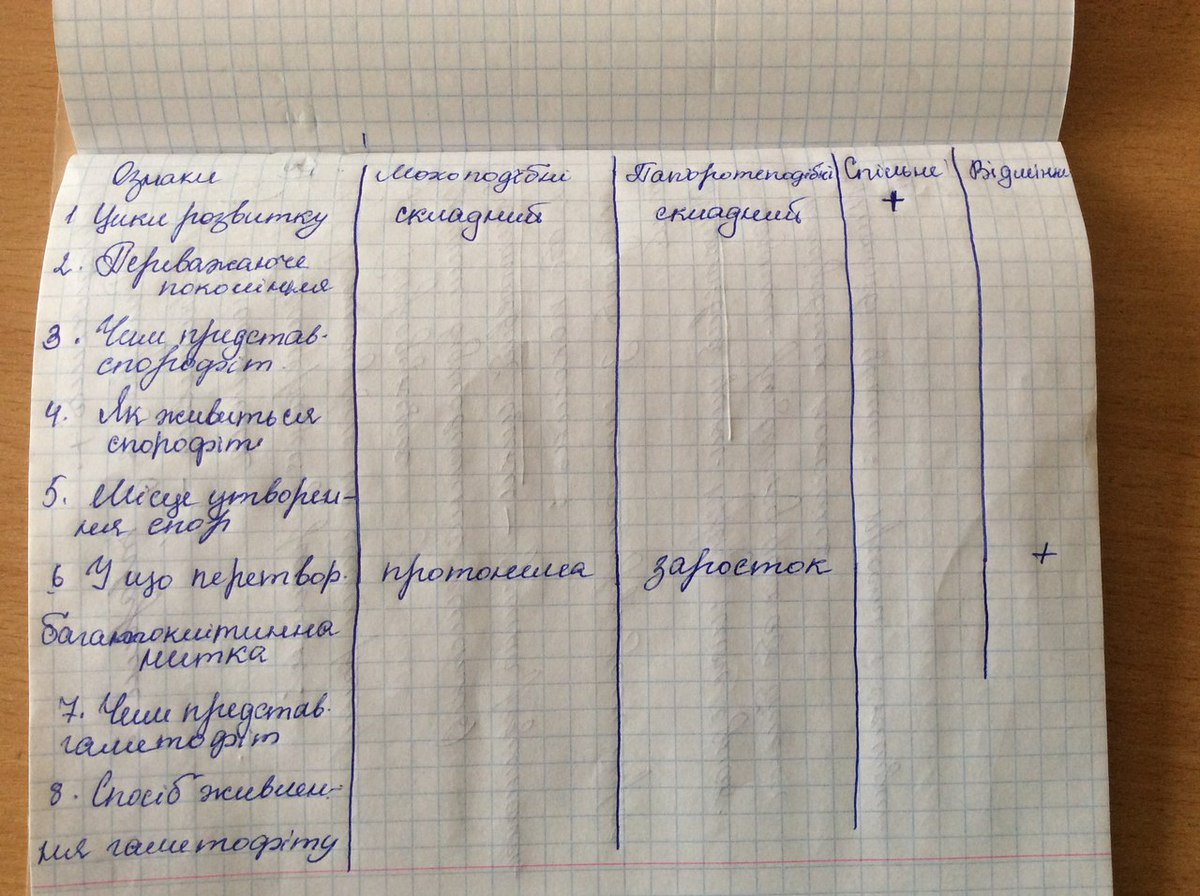 Ознаки Мохоподібні Папоротеподібні Спільне Відмінне
1 Цикл розвитку складний складний +
2. Переважаюче
покоління
3. Чим представ-
спорофіт
4. Як живиться
спорофіт
5. Місце утворен-
ня спор
6 У що перетвор. протонема заросток +
багатоклітинна
нитка
7. Чим представ.
гаметофіт
8. Спосіб живлен-
ня гаметофіту